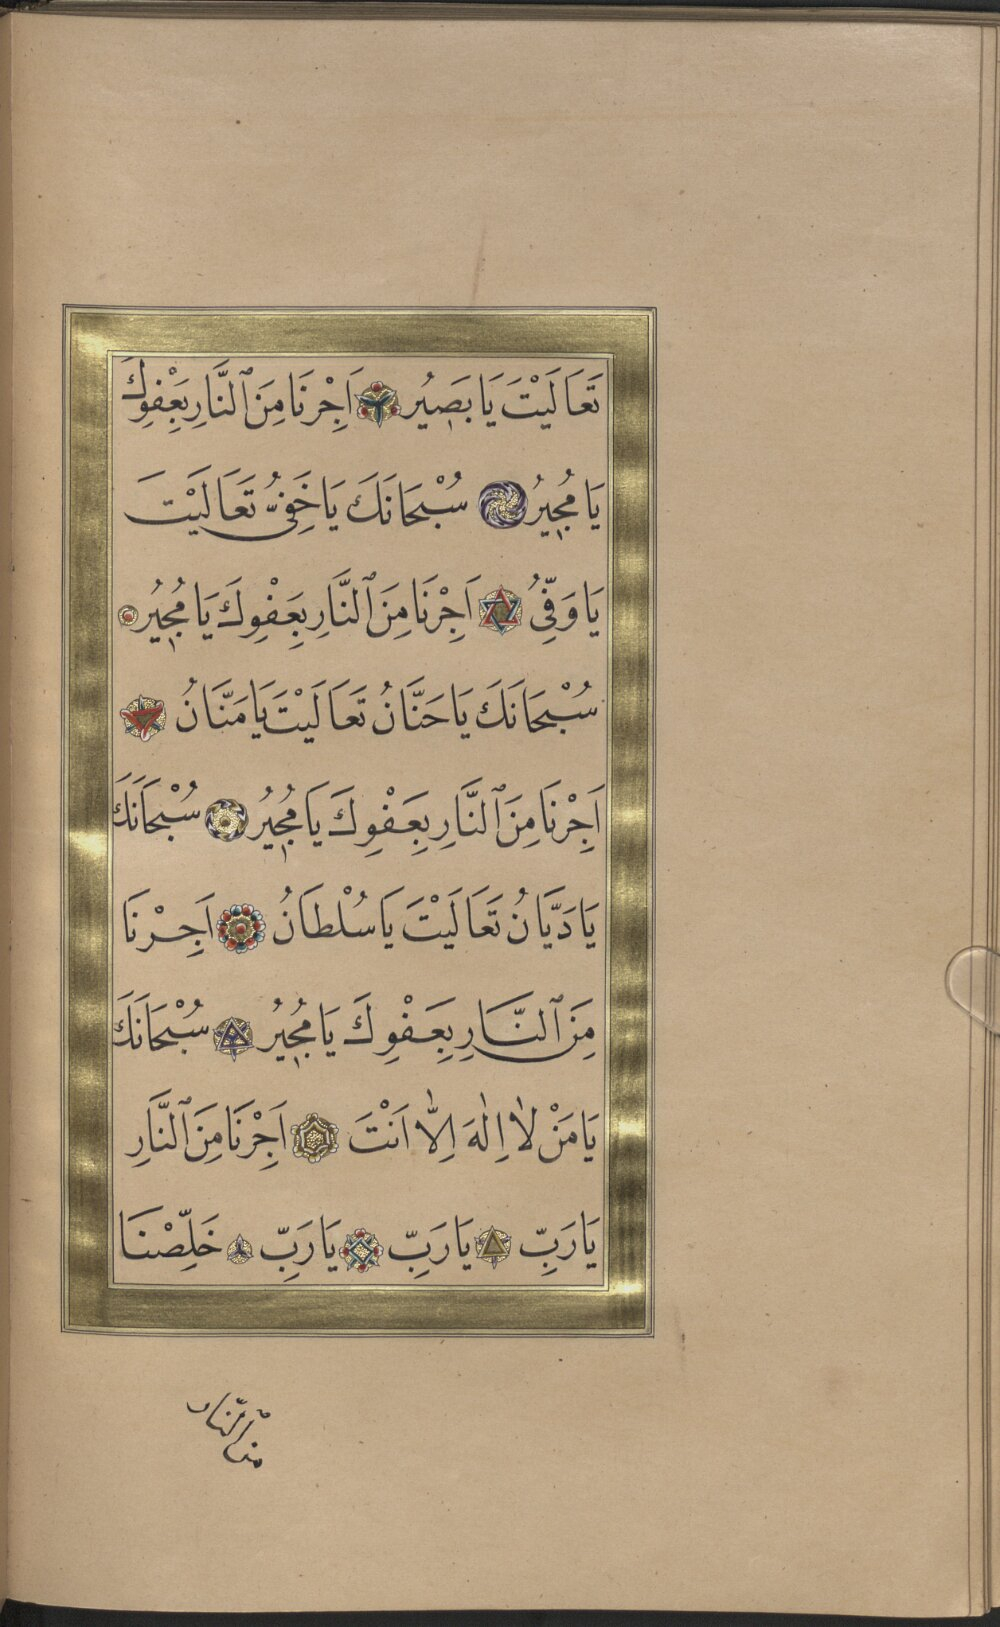 تَعَالَيْتَ يَا بَصِيرُ اَجِرْنَا مِنَ ٱلنَّارِ بِعَفْوِكَ
يَا مُجِيرُ سُبْحَانَكَ يَا خَفِيُّ تَعَالَيْتَ
يَا وَفِّيُ اَجِرْنَا مِنَ ٱلنَّارِ بِعَفْوِكَ يَا مُجِيرُ
سُبْحَانَكَ يَا حَنَّانُ تَعَالَيْتَ يَا مَنَّانُ
اَجِرْنَا مِنَ ٱلنَّارِ بِعَفْوِكَ يَا مُجِيرُ سُبْحَانَكَ
يَا دَيَّانُ تَعَالَيْتَ يَا سُلْطَانُ اَجِرْنَا
مِنَ ٱلنَّارِ بِعَفْوِكَ يَا مُجِيرُ سُبْحَانَكَ
يَا مَنْ لَا اِلٰهَ اِلَّا اَنْتَ اَجِرْنَا مِنَ ٱلنَّارِ
يَا رَبِّ يَا رَبِّ يَا رَبِّ خَلِّصْنَا
من النار